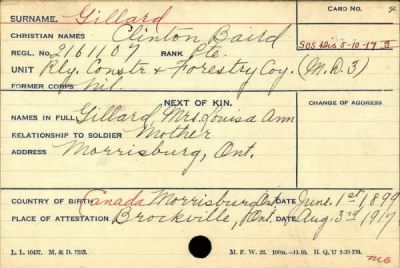 SURNAME. Gillard CARD NO. 4
CHRISTIAN NAMES Clinton Baird
REGL. NO. 2161107 RANK Pte. SOS dis 5-10-17 3
UNIT Rly. Constr & Forestry Coy. (M.D.3)
FORMER CORPS Nil.
NEXT OF KIN. CHANGE OF ADDRESS
NAMES IN FULL Gillard, Mrs. Louisa Ann
RELATIONSHIP TO SOLDIER Mother
ADDRESS Morrisburg, Ont.
COUNTRY OF BIRTH Canada Morrisburg Ont. DATE June. 1st, 1899
PLACE OF ATTESTATION Brockville, Ont. DATE Aug. 3rd 1917
L. L. 10437. M. & D. 7253. M. F. W. 22. 100M.—11-16. H. Q.